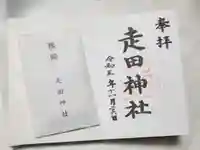 奉拝
走田神社
令和五年十一月
走田神社